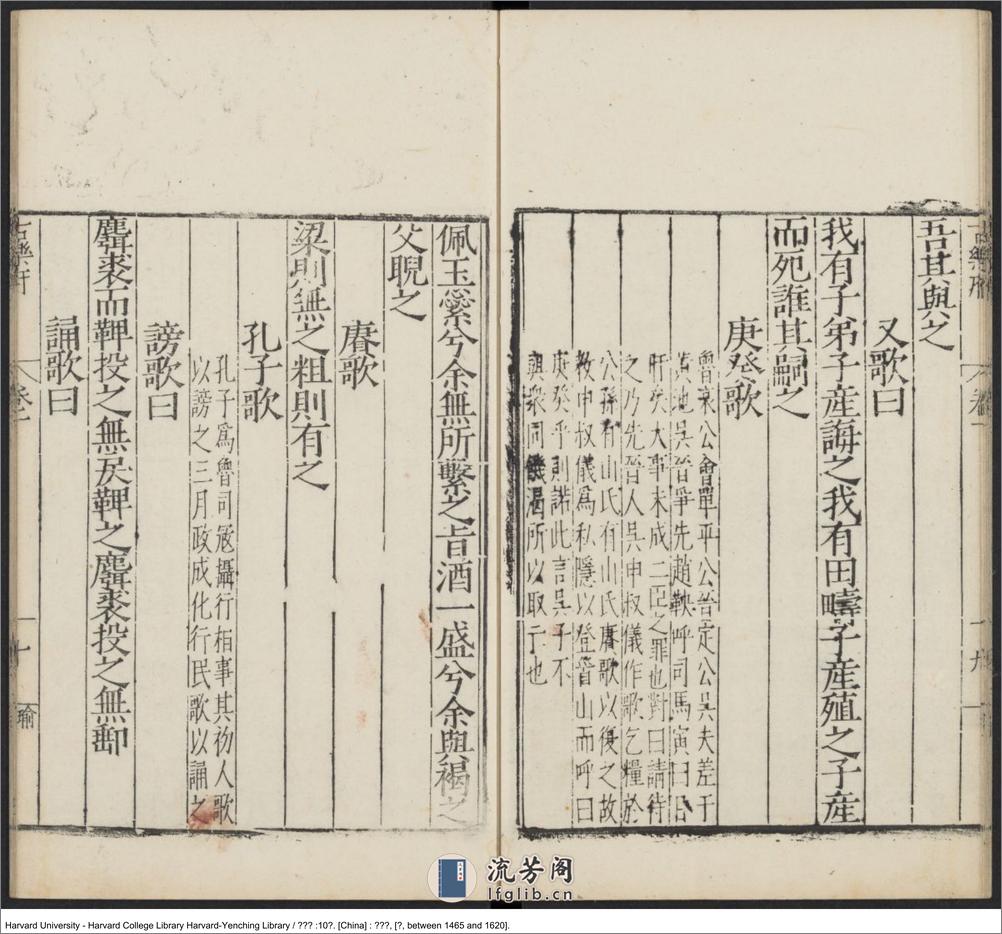 吾其與之
又歌曰
我有子弟子產誨之我有田疇子產殖之子產
而死誰其嗣之
庚癸歌
魯哀公會單平公晉定公吳夫差于
黃池吳晉爭先趙鞅呼司馬寅曰日
旰矣大事未成二臣之罪也對曰請待
之乃先晉人吳申叔儀作歌乞糧於
公孫有山氏有山氏賡歌以復之故
教申叔儀為私隱以登首山而呼曰
庚癸乎則諾此言吳子不
與衆同饑渴所以取亡也
佩玉繠兮余無所繫之旨酒一盛兮余與褐之
父睨之
賡歌
梁則無之粗則有之
孔子歌
孔子爲魯司寇攝行相事其初人歌
以謗之三月政成化行民歌以誦之
謗歌曰
麛裘而鞞投之無戾鞞之麛裘投之無郵
誦歌曰
流芳阁
lfglib.cn
Harvard University - Harvard College Library Harvard-Yenching Library / ??? :10?. [China] : ???, [?, between 1465 and 1620].